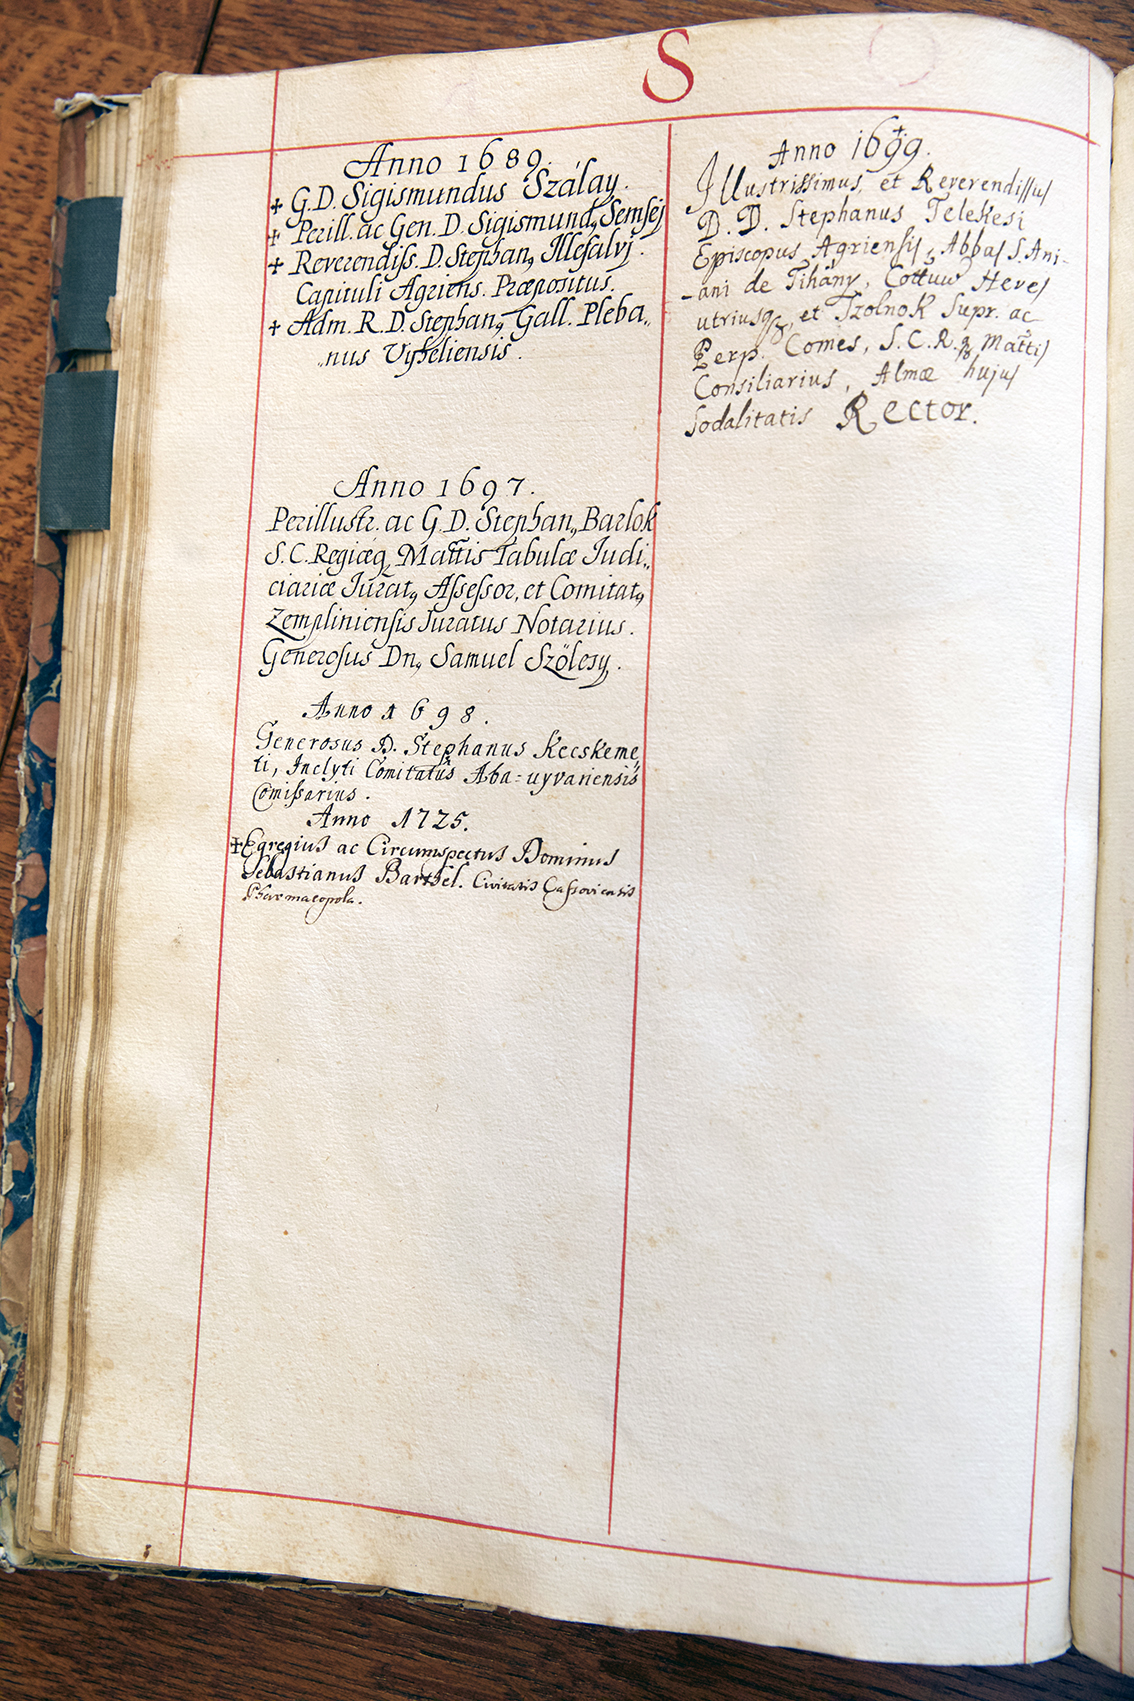 S
Anno 1689.
✝ G. D. Sigismundus Szálay.
✝ Perill. ac Gen. D. Sigismundꝰ Semsej
✝ Reverendiss. D. Stephanꝰ Illesalvj.
Capituli Agriens. Præpositus.
✝ Adm. R. D. Stephanꝰ Gall. Pleba„
„nus Uyheliensis.
Anno 1697.
Perillustr. ac G. D. Stephanꝰ Barlok
S. C. Regiæq; Mattis Tabulæ Judi„
ciariæ Juratꝰ Assessor, et Comitatꝰ
Zempliniensis Juratus Notarius.
Generosus Dnꝰ Samuel Szölesy.
Anno 1698.
Generosus D. Stephanus Kecskeme„
ti, Inclyti Comitatûs Aba=uyvariensis
Comissarius.
Anno 1725.
✝ Egregius ac Circumspectus Dominus
Sebastianus Barthel. Civitatis Cassoviensis
Pharmacopola.
Anno 1699.
✝
Illustrissimus, et Reverendissus
D. D. Stephanus Telekesi
Episcopus Agriensis, Abbas S. Ani-
-ani de Tihány, Cottuum Heves
utriusq;, et Szolnok Supr. ac
Perp. Comes, S. C. R. q; Mattis
Consiliarius, Almæ hujus
Sodalitatis Rector.